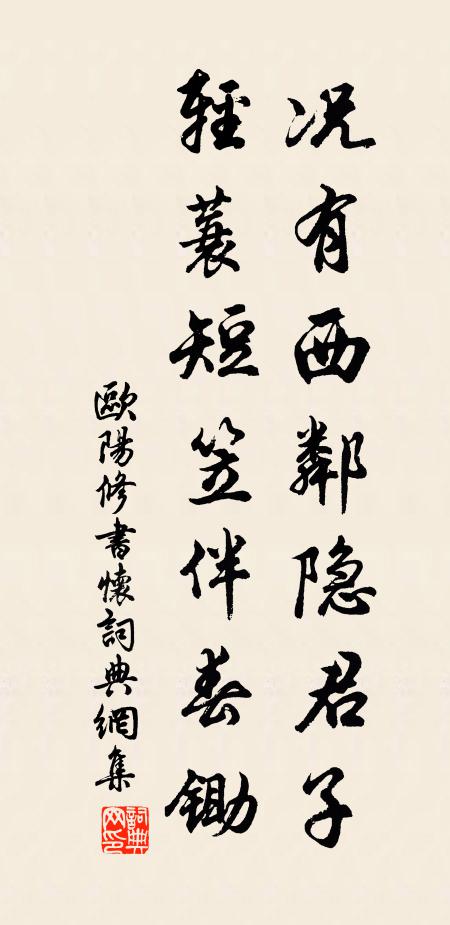 况有西鄰隐君子
輕蓑短笠伴春鋤
歐陽修書懷詞典網集
詞典网印